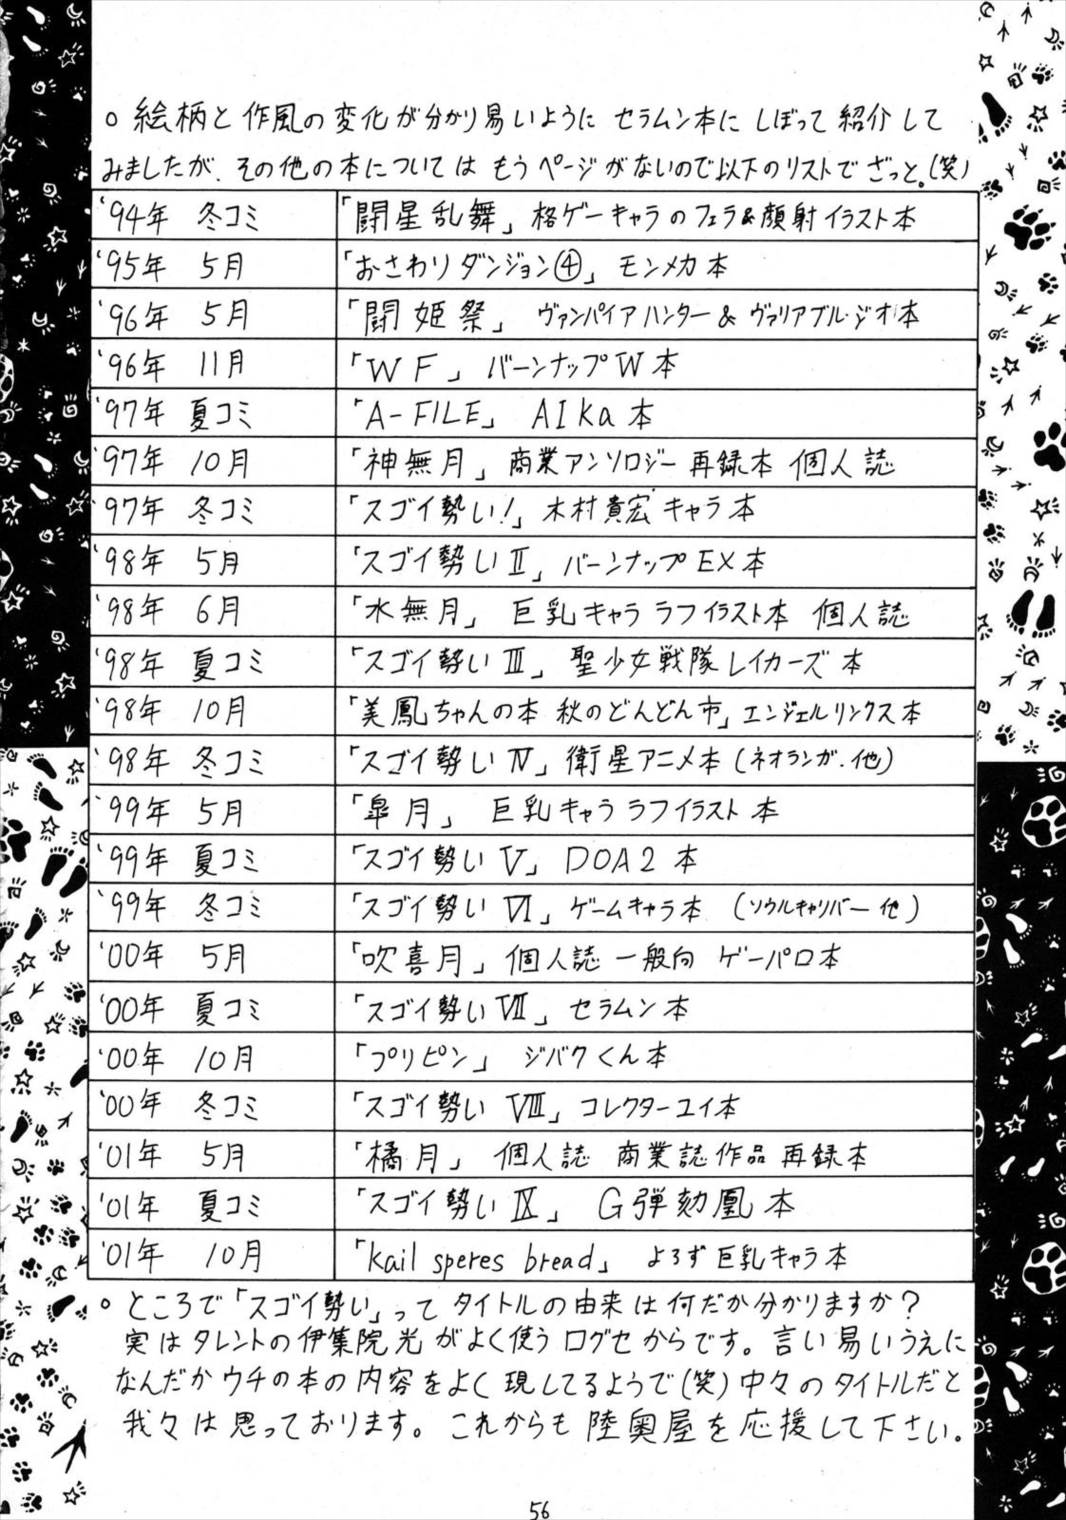 ○ 絵柄と作風の変化が分かり易いように セラムン本に しぼって 紹介して
みましたが、その他の本については もうページがないので以下のリストで ざっと。(笑)
'94年 冬コミ 「闘星乱舞」 格ゲーキャラのフェラ&顔射イラスト本
'95年 5月 「おさわりダンジョン④」 モンメカ本
'96年 5月 「闘姫祭」 ヴァンパイアハンター & ヴァリアブル・ジオ本
'96年 11月 「WF」 バーンナップW本
'97年 夏コミ 「A-FILE」 AIKa本
'97年 10月 「神無月」 商業アンソロジー再録本 個人誌
'97年 冬コミ 「スゴイ勢い!」 木村貴宏キャラ本
'98年 5月 「スゴイ勢いⅡ」 バーンナップEX本
'98年 6月 「水無月」 巨乳キャララフイラスト本 個人誌
'98年 夏コミ 「スゴイ勢いⅢ」 聖少女戦隊レイカーズ本
'98年 10月 「美鳳ちゃんの本 秋のどんどん市」 エンジェルリンクス本
'98年 冬コミ 「スゴイ勢いⅣ」 衛星アニメ本 (ネオランガ.他)
'99年 5月 「皐月」 巨乳キャララフイラスト本
'99年 夏コミ 「スゴイ勢いⅤ」 DOA2本
'99年 冬コミ 「スゴイ勢いⅥ」 ゲームキャラ本 (ソウルキャリバー他)
'00年 5月 「吹喜月」 個人誌 一般向 ゲーパロ本
'00年 夏コミ 「スゴイ勢いⅦ」 セラムン本
'00年 10月 「プリピン」 ジバクくん本
'00年 冬コミ 「スゴイ勢いⅧ」 コレクターユイ本
'01年 5月 「橘月」 個人誌 商業誌作品再録本
'01年 夏コミ 「スゴイ勢いⅨ」 G弾劾凰本
'01年 10月 「kail speres bread」 よろず巨乳キャラ本
○ ところで「スゴイ勢い」って タイトルの由来は何だか分かりますか?
実はタレントの伊集院光がよく使うログセからです。言い易いうえに
なんだかウチの本の内容をよく現してるようで(笑)中々のタイトルだと
我々は思っております。これからも陸奥屋を応援して下さい。
56